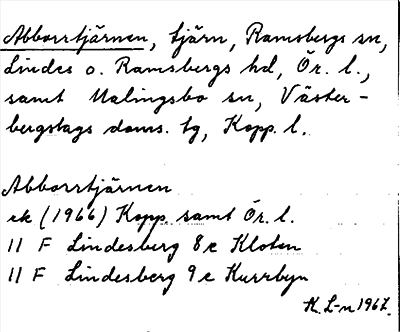 Abborrtjärnen, tjärn, Ramsbergs sn,
Lindes o. Ramsbergs hd, Ör. l.,
samt Malingsbo sn, Väster-
bergslags doms. tg, Kopp. l.
Abborrtjärnen
ek (1966) Kopp. samt Ör. l.
11 F Lindesberg 8e Kloten
11 F Lindesberg 9e Kurrbyn
K. L-n 1967.